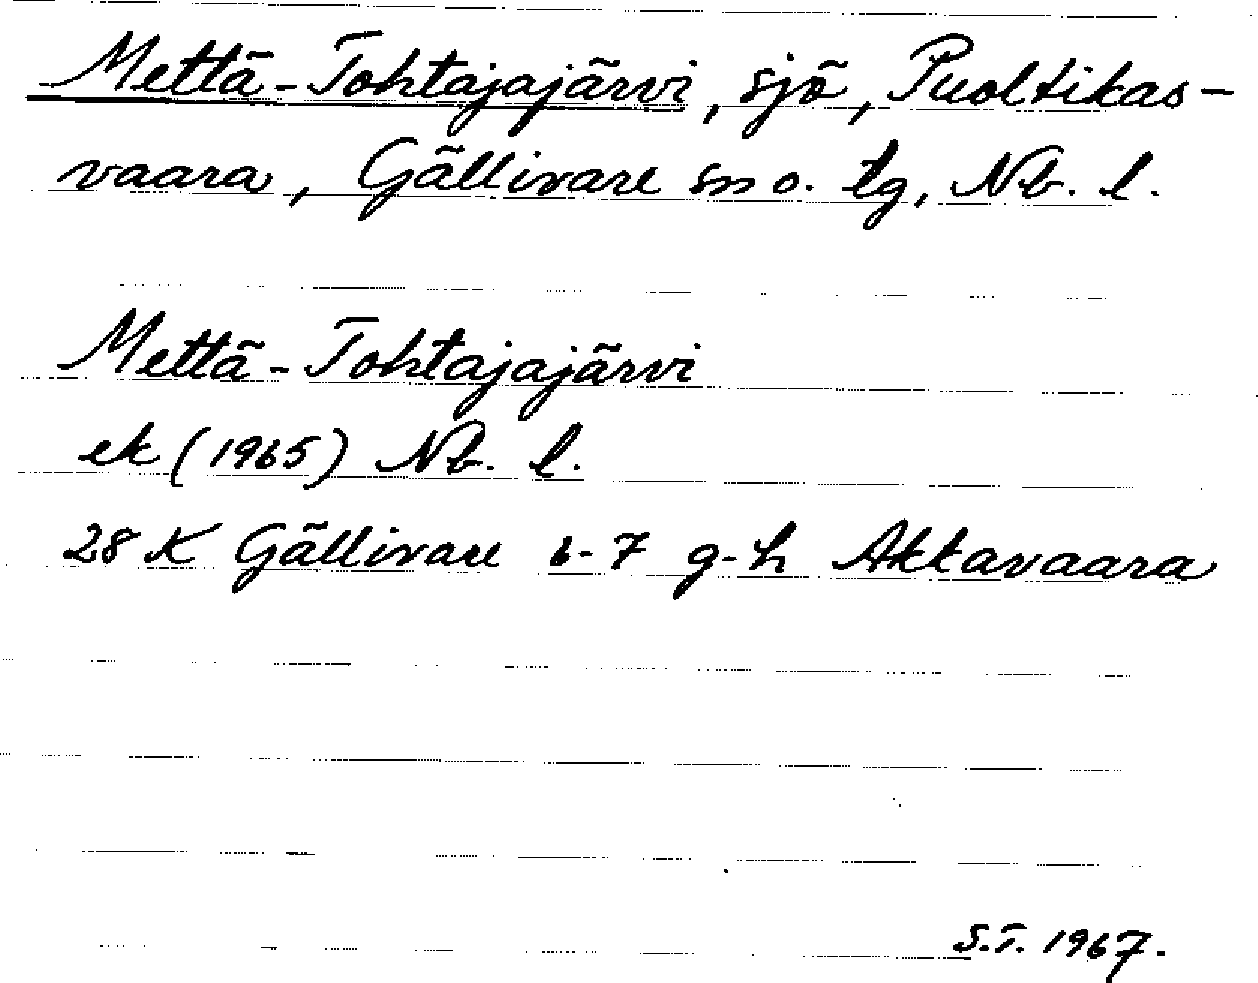 Mettä-Tohtajajärvi, sjö, Puoltikas-
vaara, Gällivare sn o. tg, Nb. l.
Mettä-Tohtajajärvi
ek (1965) Nb. l.
28 K Gällivare 6-7 g-h Akkavaara
S.T. 1967.